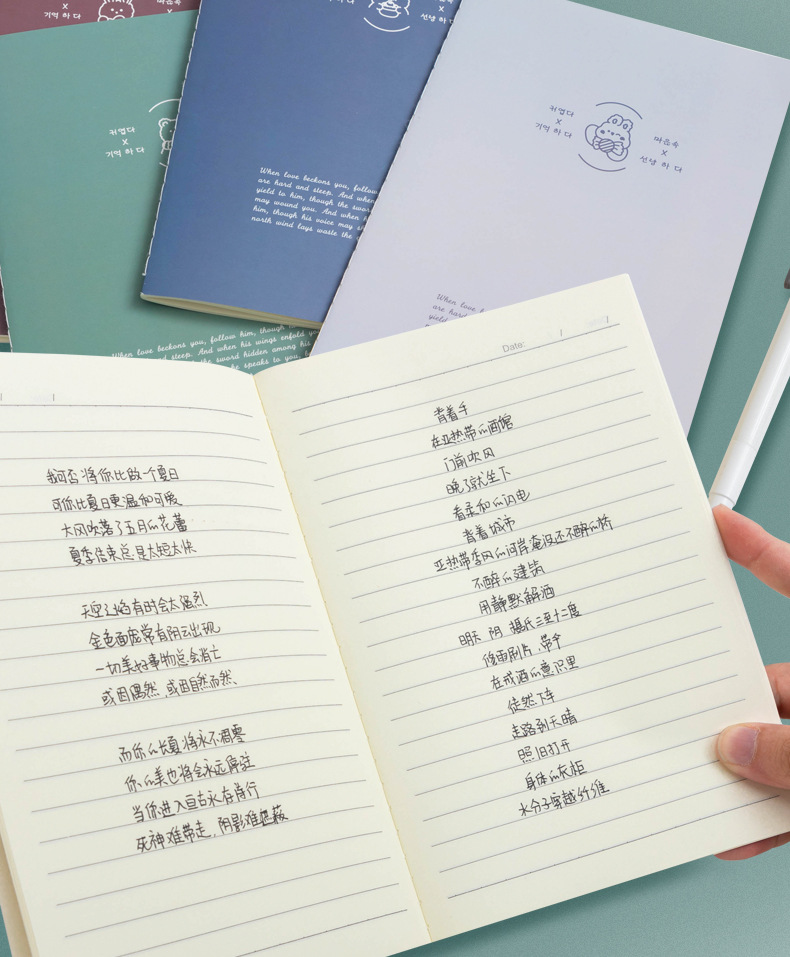 x
기억 하 다
x
선녕 하 다
커엽다
x
기억 하 다
When love beckons you, follow
are hard and steep. And when
yield to him, though the swor
may wound you. And when h
him, though his voice may s
north wind lays waste the
커엽다
x
기억 하 다
마음속
x
선녕 하 다
When love
are hard
yield
When love beckons you, follow him, though
steep. And when his wings enfold you
the sword hidden among his
he speaks to you, b
Date: / /
我可否将你比做一个夏日
可你比夏日更温和可爱
大风吹落了五月的花蕾
夏季结束总是太短太快
天空之焰有时会太强烈
金色面庞常有阴云出现
一切美好事物总会消亡
或因偶然,或因自然而然、
而你的长夏将永不凋零
你的美也将会永远停驻
当你进入亘古永存诗行
死神难带走,阴影难遮蔽
背着手
在亚热带的酒馆
门前吹风
晚了就坐下
看柔和的闪电
背着城市
亚热带季风的河岸淹没还不醉的桥
不醉的建筑
用静默解酒
明天 阴 摄氏三至十二度
修雨刷片,带伞
在戒酒的意识里
徒然下车
走路到天晴
照旧打开
身体的衣柜
水分子穿越纤维